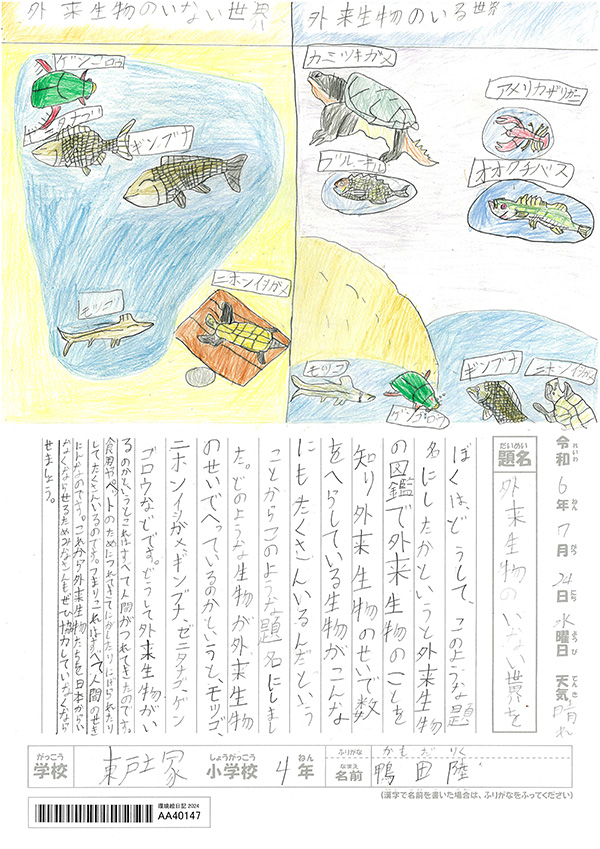 外来生物のいない世界
外来生物のいる世界
ゲンゴロウ
ギンブナ
モツゴ
ニホンイシガメ
カミツキガメ
アメリカザリガニ
ブルーギル
オオクチバス
モツゴ
ゲンゴロウ
ギンブナ
ニホンイシガメ
令和6年7月24日水曜日 天気 晴れ
れいわ ねん がつ にち ようび てんき
だいめい
題名
外来生物のいない世界を
ぼくは、どうして、このような題
名にしたかというと外来生物
の図鑑で外来生物のことを
知り外来生物のせいで数
をへらしている生物がこんな
にもたくさんいるんだという
ことからこのような題名にしまし
た。どのような生物が外来生物
のせいでへっているのかというと、モツゴ、
ニホンイシガメ、ギンブナ、ゼニタナゴ、ゲン
ゴロウなどです。どうして外来生物がい
るのかというとこれはすべて人間がつれてきたのです。
食用やペットのためにつれてきてにがしたりにげられたり
してたくさんいるのです。つまりこれはすべて人間のせき
にんなのです。これから外来生物たちを日本からい
なくならせるためみなさんもぜひ協力していなくなら
せましょう。
がっこう しょうがっこう ねん ふりがな かもだりく
学校 東戸塚 小学校 4年 なまえ 名前 鴨田陸
(漢字で名前を書いた場合は、ふりがなをふってください)
環境絵日記 2024
AA40147